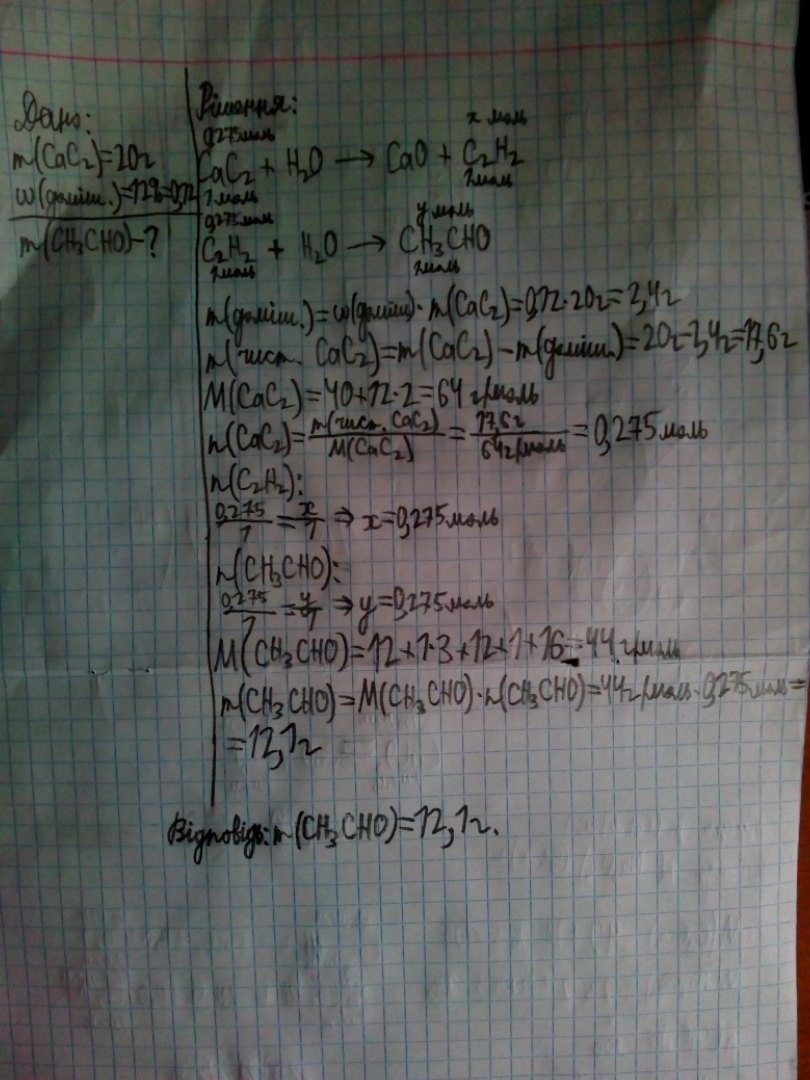 Дано:
m(CaC₂)=20г
w(доміш.)=12%=0,12
m(CH₃CHO)-?
Рішення:
0,275моль
x моль
CaC₂ + H₂O → CaO + C₂H₂
1моль
1моль
0,275моль
y моль
C₂H₂ + H₂O → CH₃CHO
1моль
1моль
m(доміш.)=w(доміш)·m(CaC₂)=0,12·20г=2,4г
m(чист. CaC₂)=m(CaC₂)-m(доміш.)=20г-2,4г=17,6г
M(CaC₂)=40+12·2=64 г/моль
n(CaC₂)=m(чист. CaC₂)/M(CaC₂)=17,6г/64г/моль=0,275моль
n(C₂H₂):
0,275/1=x/1 ⇒ x=0,275моль
n(CH₃CHO):
0,275/1=y/1 ⇒ y=0,275моль
M(CH₃CHO)=12+1·3+12+1+16=44 г/моль
m(CH₃CHO)=M(CH₃CHO)·n(CH₃CHO)=44г/моль·0,275моль=
=12,1г
Відповідь: m(CH₃CHO)=12,1г.